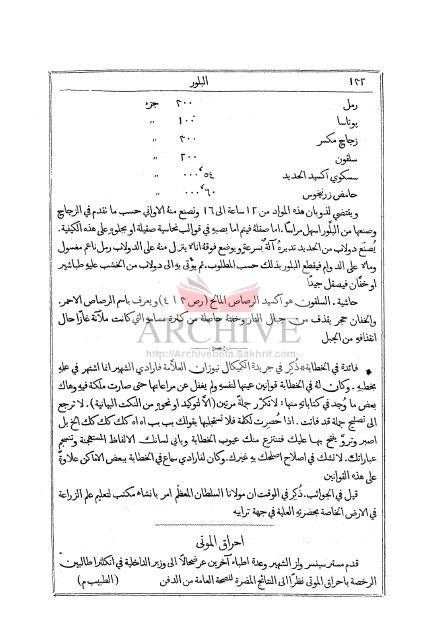 ١٢٢ البلور
رمل ٣٠٠ جزء
بوتاسا ١٠٠ "
زجاج مكسر ٣٠٠ "
سلقون ٢٠٠ "
سسكوي اكسيد الحديد ٥٤ "
حامض زرنيخوس ٦٠ "
ويقتضي لذوبان هذه المواد من ١٢ ساعة الى ١٦ وتصنع منه الاواني حسب ما تقدم في الزجاج
وصنعها من البلور اسهل مراسًا. اما صقله فيتم اما بصبه في قوالب نحاسية صقيلة او بجلوه على هذه الكيفية.
يُصنَع دولاب من الحديد تديره آلة بسرعة ويوضع فوقه اناء ينزل منه على الدولاب رمل ناعم مغسول
وماء على الدوام فيقطع البلور بذلك حسب المطلوب. ثم يؤتى به الى دولاب من الخشب عليه طباشير
او خفان فيصقل جيدًا
حاشية. السلقون هو اكسيد الرصاص المالح (رص ٣ ا ٤) ويعرف باسم الرصاص الاحمر.
والخفان حجر يقذف من جبال النار وخفته حاصلة من كثرة مسامه التي كانت ملآنة غازًا حال
انقذافه من الجبل
ARCHIVE
http://Archivebeta.Sakhrit.com
فائدة في الخطابة * ذُكِر في جريدة الكميكال نيوز ان العلّامة فارادي الشهير انما اشتهر في علمه
بخطبه. وكان له في الخطابة قوانين عينها لنفسه ولم يغفل عن مراعاتها حتى صارت ملكة فيه وهاك
بعض ما وُجد في كتاباته منها: لا تكرّر جملة مرتين (الّا لتوكيد او نحوه من النكت البيانية). لا ترجع
الى تصليح جملة قد فاتت. اذا حُصِرت لكلمة فلا تستقبلها بقولك بب بب اه اه كك كك كك الخ بل
اصبر وتروَّ يفتح بها عليك فتنتزع منك عيوب الخطابة وباني لسانك الالفاظ المستهجنة وتنسجم
عباراتك. لا تشك في اصلاح اصلحك به غيرك. وكان لفارادي سماع في الخطابة ببعض الاماكن علاوةً
على هذه القوانين
قيل في الجوائب. ذُكِر في الوقت ان مولانا السلطان المعظم امر بانشاء مكتب لتعليم علم الزراعة
في الارض الخاصة بحضرته العلية في جهة ترابيه
احراق الموتى
قدم مستر سبنسر ولز الشهير وعدة اطباء آخرين عرضحالًا الى وزير الداخلية في انكلترا طالبين
الرخصة باحراق الموتى نظرًا الى النتائج المضرة للصحة العامة من الدفن (الطبيب م)